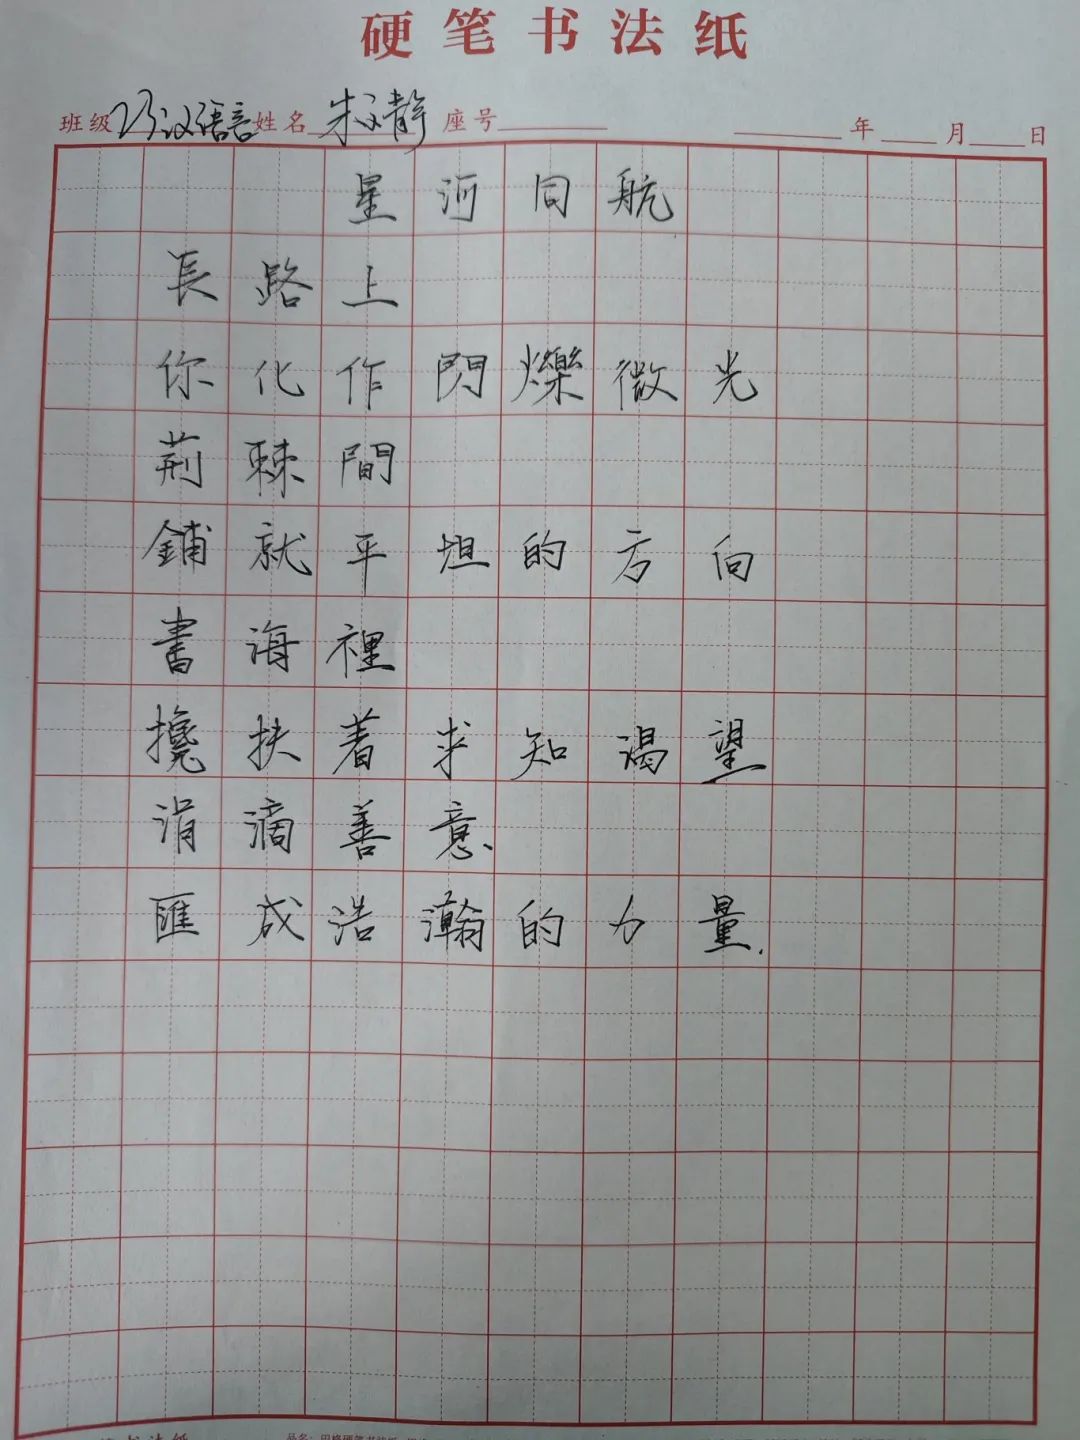 硬笔书法纸
班级 23汉语言 姓名 朱文静 座号 年 月 日
星河同航
長路上
你化作閃爍微光
荊棘間
鋪就平坦的方向
書海裡
攙扶着求知渴望
涓滴善意
匯成浩瀚的力量.
书法纸